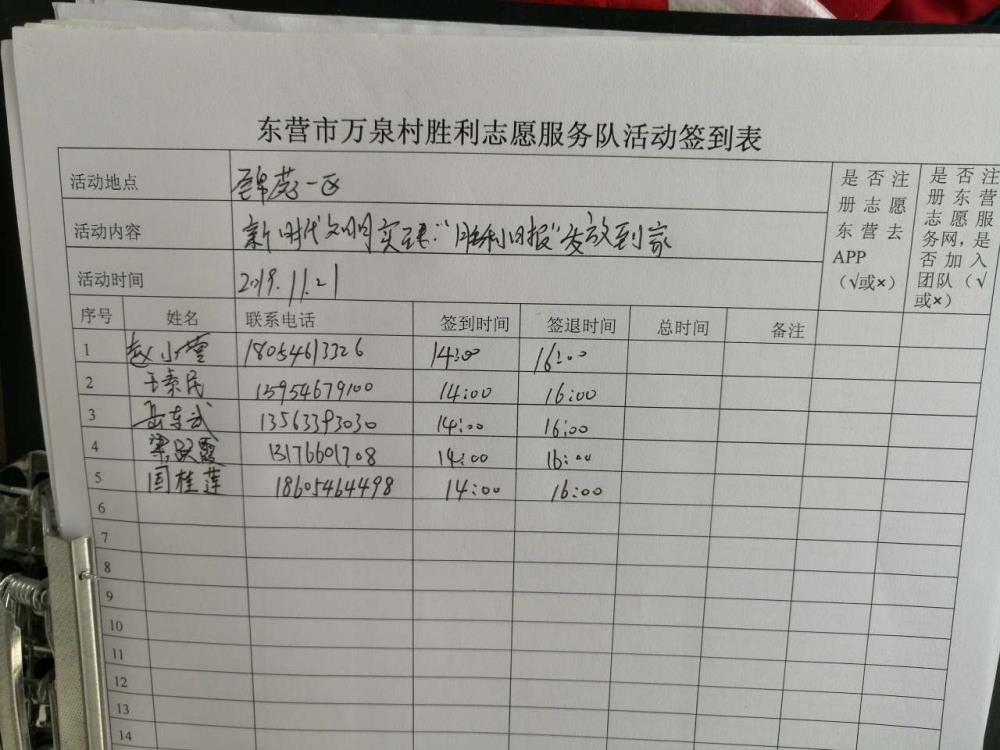 东营市万泉村胜利志愿服务队活动签到表
活动地点 锦苑一区
是否注册志愿东营去APP（√或×）
是否注册东营志愿服务网，是否加入团队（√或×）
活动内容 新时代文明实践："胜利日报"发放到家
活动时间 2019.11.21
序号 姓名 联系电话 签到时间 签退时间 总时间 备注
1 赵小雪 18054613326 14:00 16:00
2 王素民 13954679100 14:00 16:00
3 岳东武 13563393030 14:00 16:00
4 梁跃霞 13176601708 14:00 16:00
5 国桂莲 18605464498 14:00 16:00
6
7
8
9
10
11
12
13
14